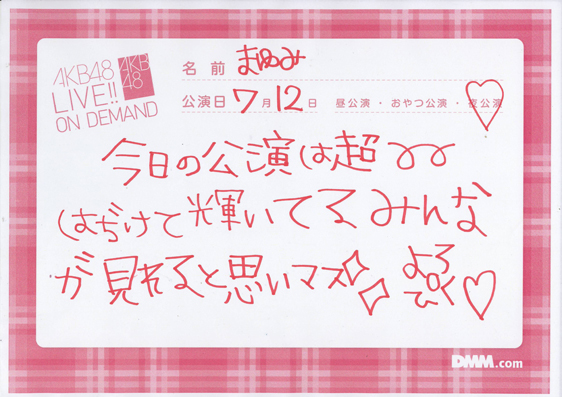 AKB48
LIVE!!
ON DEMAND
AKB
48
名前 まゆみ
公演日 7月12日 昼公演・おやつ公演・夜公演
今日の公演は超
はぢけて輝いてるみんな
が見れると思いマス
よろ
ぴく
DMM.com